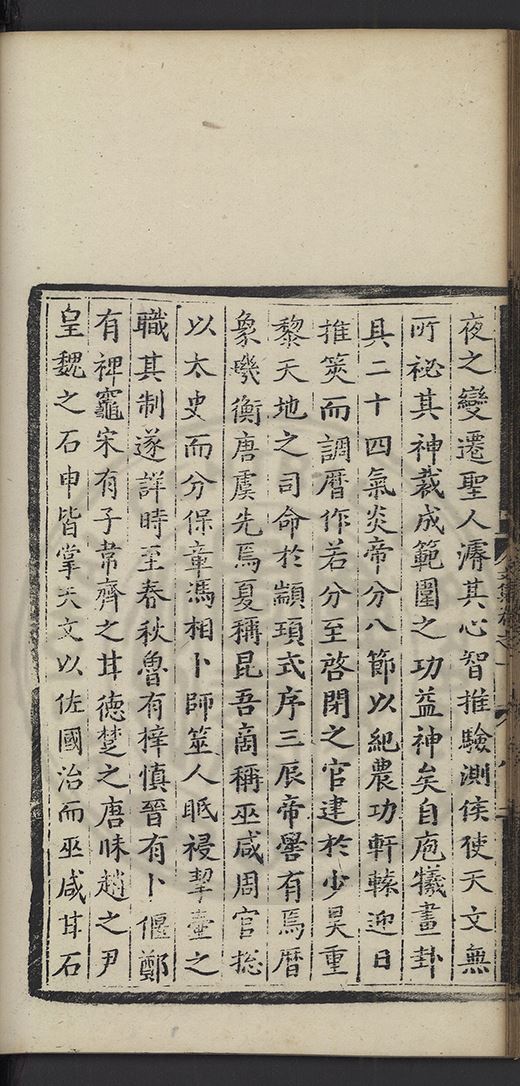 夜之變遷聖人濬其心智推驗測候使天文無
所祕其神裁成範圍之功益神矣自庖犧畫卦
具二十四氣炎帝分八節以紀農功軒轅迎日
推筴而調曆作若分至啓閉之官建於少昊重
黎天地之司命於顓頊式序三辰帝嚳有焉曆
象璣衡唐虞先焉夏稱昆吾啇稱巫咸周官捴
以太史而分保章馮相卜師筮人眡祲挈壷之
職其制遂詳時至春秋魯有梓慎晉有卜偃鄭
有裨竈宋有子韋齊之甘德楚之唐眛趙之尹
皇魏之石申皆掌天文以佐國治而巫咸甘石